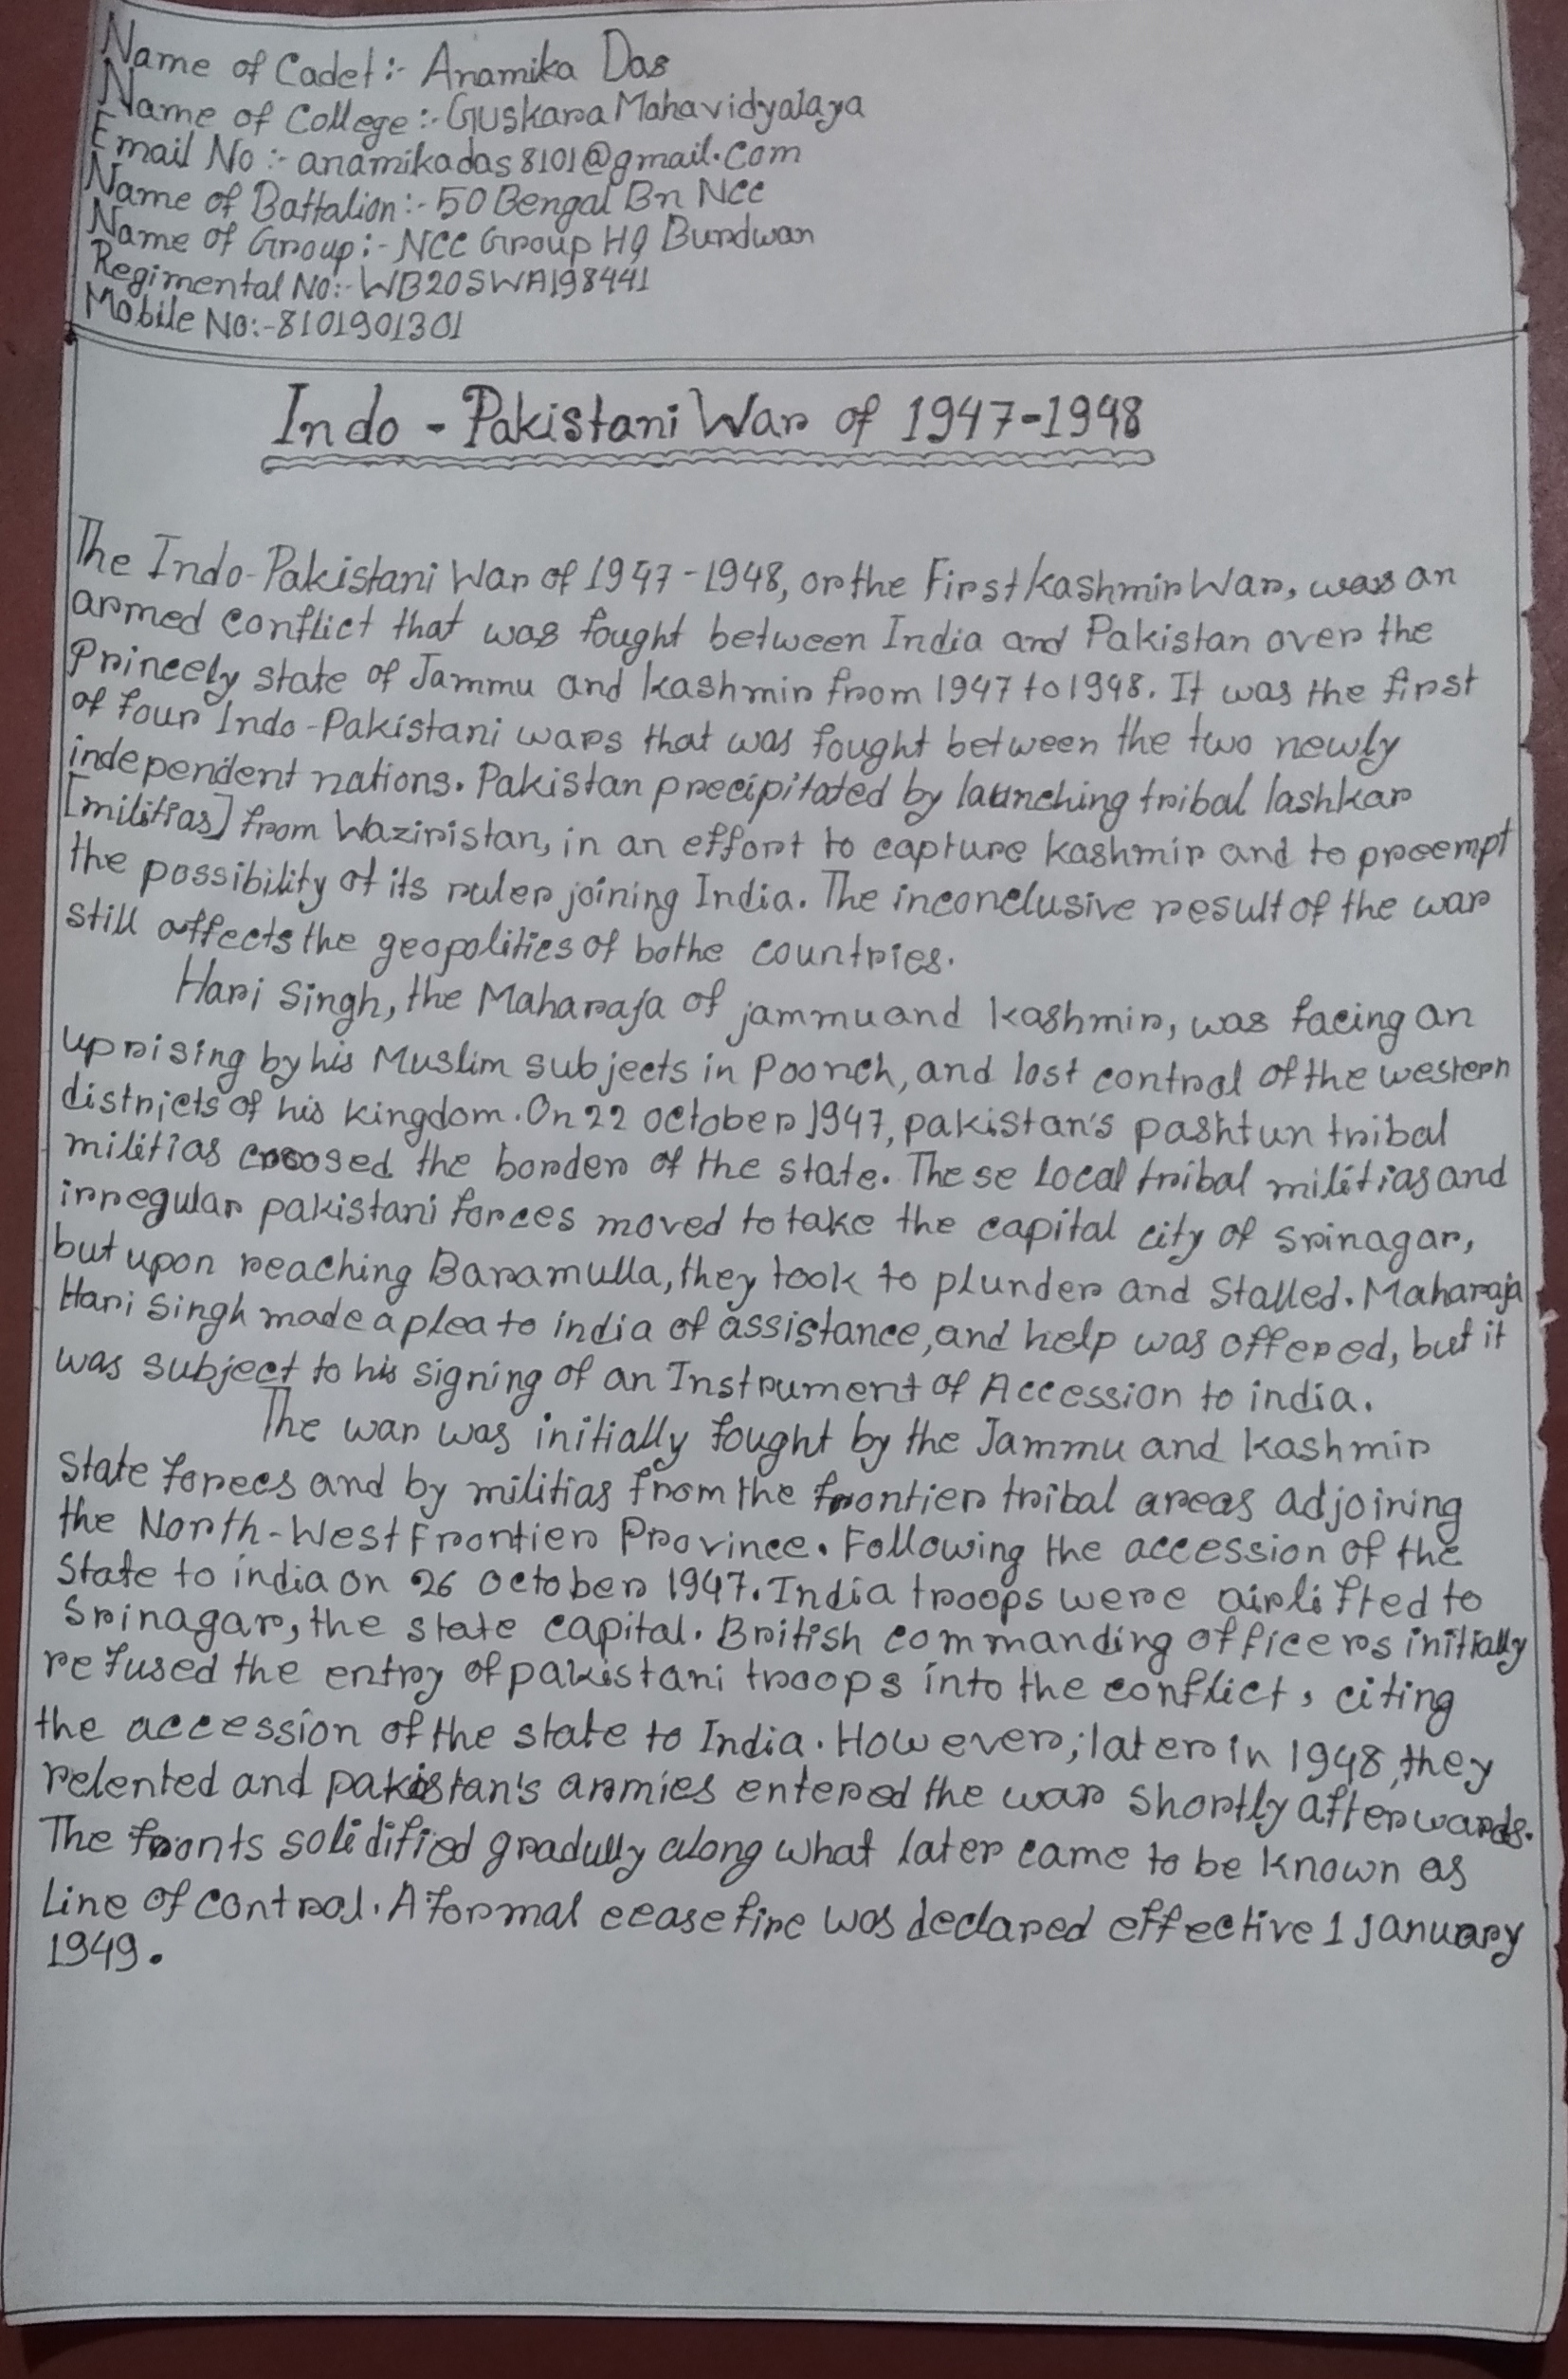 Name of Cadet:- Anamika Das
Name of College:- Guskara Mahavidyalaya
Email No:- anamikadas8101@gmail.com
Name of Battalion:- 50 Bengal Bn NCC
Name of Group:- NCC Group HQ Burdwan
Regimental No:- WB20SWA198441
Mobile No:-8101901301
Indo - Pakistani War of 1947-1948
The Indo-Pakistani War of 1947-1948, or the First kashmir War, was an
armed conflict that was fought between India and Pakistan over the
Princely state of Jammu and kashmir from 1947 to 1948. It was the first
of four Indo-Pakistani wars that was fought between the two newly
independent nations. Pakistan precipitated by launching tribal lashkar
[militias] from Waziristan, in an effort to capture kashmir and to preempt
the possibility of its ruler joining India. The inconclusive result of the war
still affects the geopolitics of bothe countries.
Hari Singh, the Maharaja of jammu and kashmir, was facing an
uprising by his Muslim subjects in Poonch, and lost control of the western
districts of his kingdom. On 22 october 1947, pakistan's pashtun tribal
militias crossed the border of the state. These local tribal militias and
irregular pakistani forces moved to take the capital city of srinagar,
but upon reaching Baramulla, they took to plunder and stalled. Maharaja
Hari Singh made a plea to india of assistance, and help was offered, but it
was subject to his signing of an Instrument of Accession to india.
The war was initially fought by the Jammu and kashmir
state forces and by militias from the frontier tribal areas adjoining
the North-West Frontier Province. Following the accession of the
State to india on 26 october 1947. India troops were airlifted to
Srinagar, the state capital. British commanding officers initially
refused the entry of pakistani troops into the conflict, citing
the accession of the state to India. However, later in 1948, they
relented and pakistan's armies entered the war shortly afterwards.
The fronts solidified gradully along what later came to be known as
Line of control. A formal ceasefire was declared effective 1 January
1949.